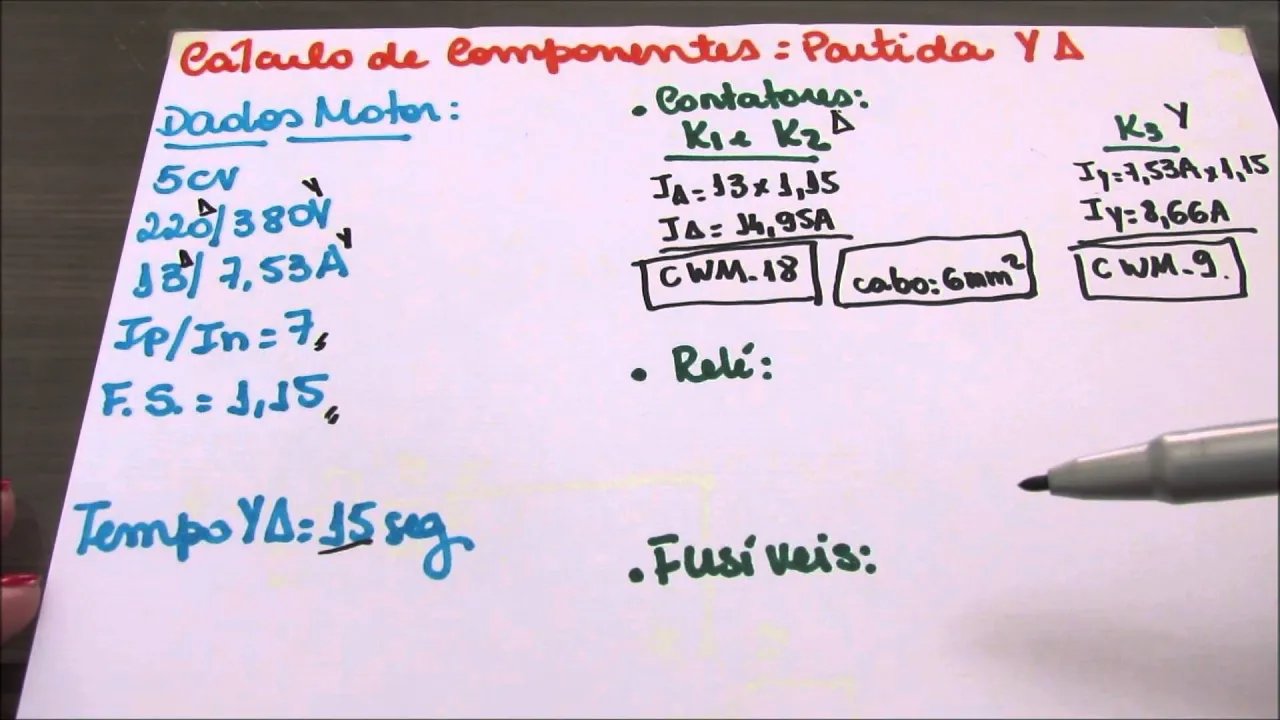 Cálculo de Componentes: Partida Y Δ
Dados Motor:
5CV
220Δ/380VY
13Δ/7,53AY
Ip/In=7,
F.S.=1,15,
Tempo YΔ=15seg
• Contatores:
K1 e K2 Δ
IΔ=13x1,15
IΔ=14,95A
CWM-18
cabo:6mm²
K3 Y
IY=7,53Ax1,15
IY=8,66A
CWM-9.
• Relé:
• Fusíveis: